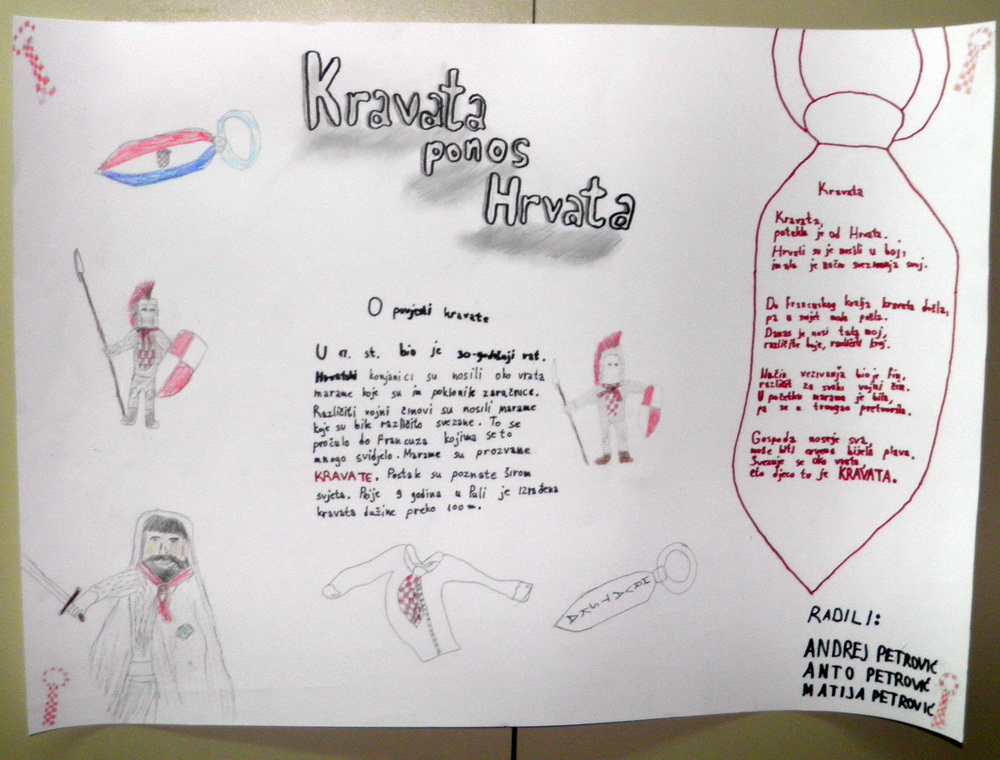 Kravata
ponos
Hrvata
O povijesti kravate
U 17. st. bio je 30-godišnji rat.
Hrvatski konjanici su nosili oko vrata
marame koje su im poklonile zaručnice.
Različiti vojni činovi su nosili marame
koje su bile različito svezane. To se
pročulo do Francuza kojima se to
mnogo svidjelo. Marame su prozvane
KRAVATE. Postale su poznate širom
svijeta. Prije 9 godina u Puli je izrađena
kravata dužine preko 100 m.
HRVATSKA
Kravata
Kravata,
potekla je od Hrvata.
Hrvati su je nosili u boj,
imala je način svezivanja svoj.
Do Francuskog kralja kravata došla,
pa u svijet moda pošla.
Danas je nosi tata moj,
različite boje, različit kroj.
Način vezivanja bio je fin,
različit za svaki vojni čin.
U početku marama je bila,
pa se u trougao pretvorila.
Gospoda nose je sva,
može biti crvena bijela plava.
Svezuje se oko vrata,
eto djeco to je KRAVATA.
RADILI:
ANDREJ PETROVIĆ
ANTO PETROVIĆ
MATIJA PETROVIĆ